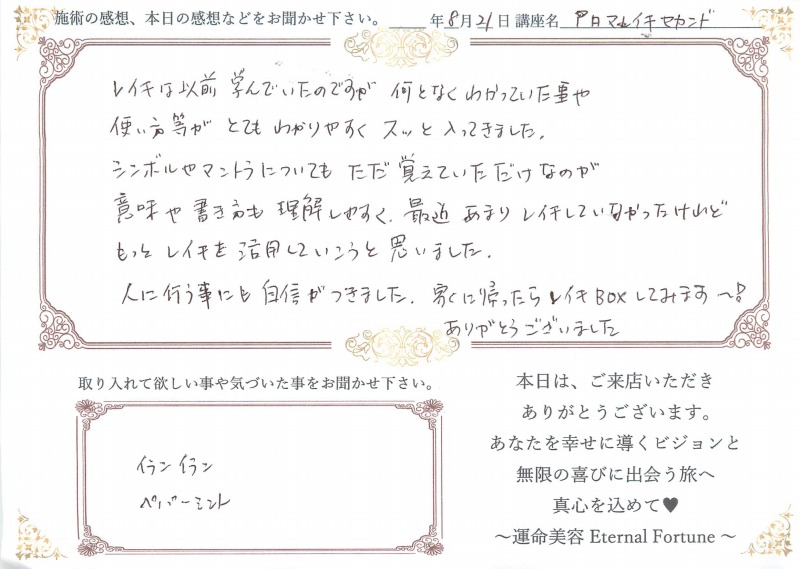 施術の感想、本日の感想などをお聞かせ下さい。 年 8月 21日 講座名 アロマレイキセカンド
レイキは以前 学んでいたのですが 何となくわかっていた事や
使い方等が とても わかりやすく スッと 入ってきました。
シンボルやマントラについても ただ 覚えていただけなのが
意味や 書き方も 理解しやすく、最近 あまり レイキしていなかったけれど
もっと レイキを 活用していこうと 思いました。
人に行う事にも 自信がつきました。家に帰ったら レイキBOXしてみます〜!
ありがとうございました
取り入れて欲しい事や気づいた事をお聞かせ下さい。
イランイラン
ペパーミント
本日は、ご来店いただき
ありがとうございます。
あなたを幸せに導くビジョンと
無限の喜びに出会う旅へ
真心を込めて♥
〜運命美容 Eternal Fortune〜